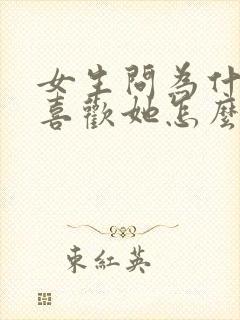 女生問為什
喜歡她怎麼
東紅英